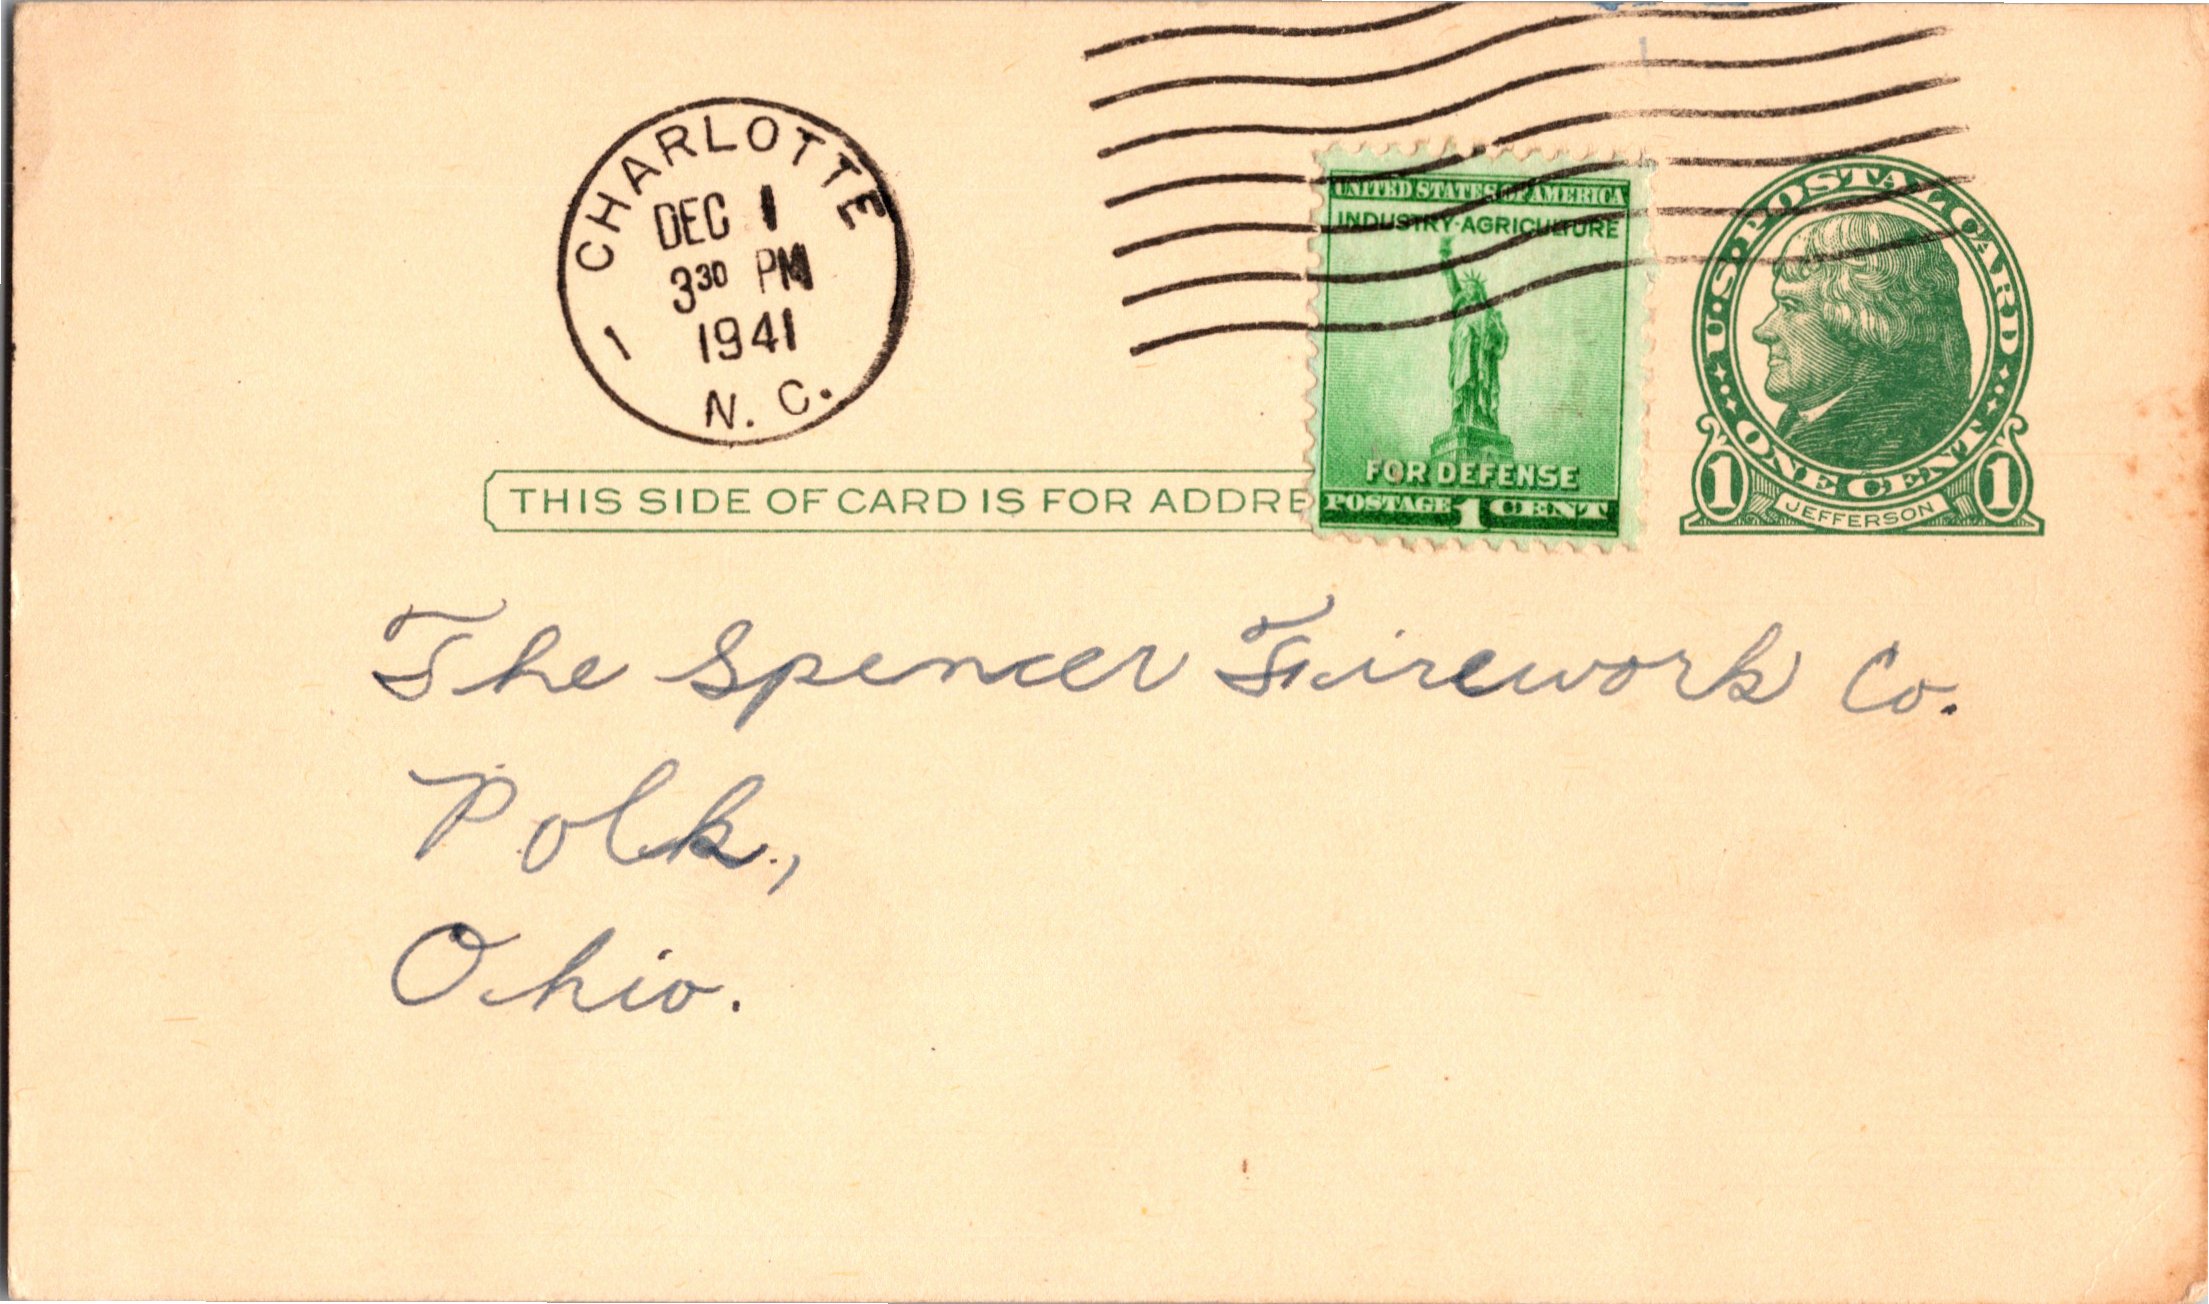 CHARLOTTE
DEC 1
3 30 PM
1941
1
N. C.
UNITED STATES OF AMERICA
INDUSTRY-AGRICULTURE
FOR DEFENSE
POSTAGE 1 CENT
U.S. POSTAL CARD
ONE CENT
1 JEFFERSON 1
THIS SIDE OF CARD IS FOR ADDRE
The Spencer Firework Co.
Polk,
Ohio.